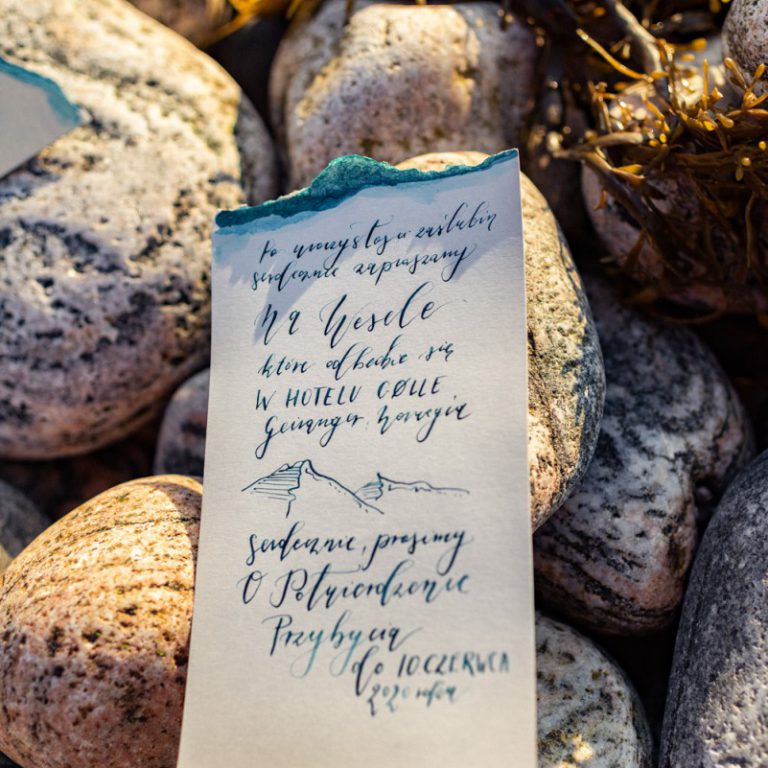 Po uroczystości zaślubin
serdecznie zapraszamy
Na Wesele
które odbędzie się
W HOTELU COLLE
Geiranger, Norwegia
Serdecznie, prosimy
O Potwierdzenie
Przybycia
do 10 CZERWCA
2020 roku